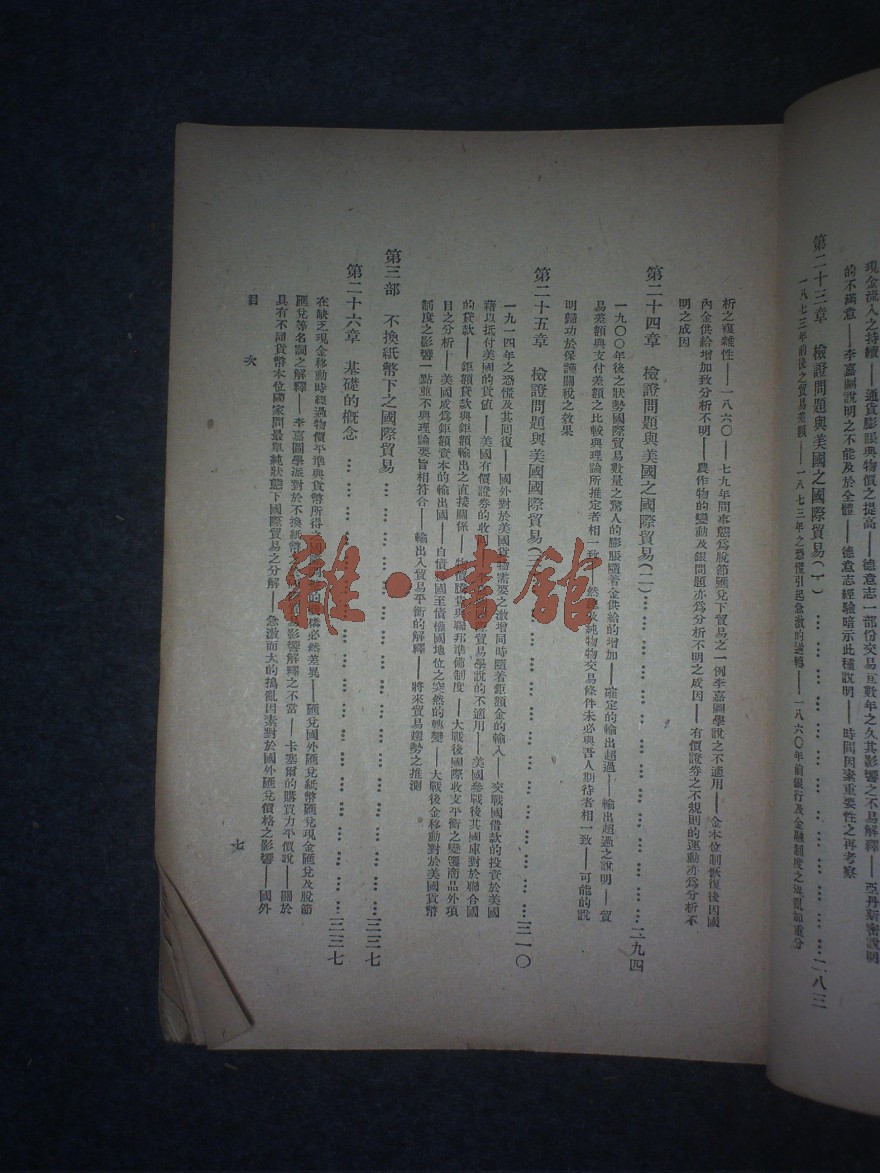 現金流入之持續——通貨膨脹與物價之提高——德意志一部份交易亘數年之久其影響之不易解釋——亞丹斯密說明
的不滿意——李嘉圖說明之不能及於全體——德意志經驗暗示此種說明——時間因素重要性之再考察
第二十三章 檢證問題與美國之國際貿易(一)…………二八三
一八七三年前後之貿易差額——一八七三年之恐慌引起急激的逆轉——一八六〇年前銀行及金融制度之
析之複雜性——一八六〇—七九年間事態為脫節匯兌下貿易之一例李嘉圖學說之不適用——金本位制恢復後因國
內金供給增加致分析不明——農作物的變動及銀問題亦為分析不明之成因——有價證券之不規則的運動亦為分析不
明之成因
第二十四章 檢證問題與美國之國際貿易(二)…………二九四
一九〇〇年後之狀勢國際貿易數量之驚人的膨脹隨着金供給的增加——確定的輸出超過——輸出超過之說明——貿
易差額與支付差額之比較與理論所推定者相一致——然純物物交易條件未必與吾人期待者相一致——可能的說
明歸功於保護關稅之效果
第二十五章 檢證問題與美國國際貿易(三)…………三一〇
一九一四年之恐慌及其回復——國外對於美國貨物需要之激增同時隨着鉅額金的輸入——交戰國借款的投資於美國
藉以抵付美國的貨值——美國有價證券的收回貿易學說的不適用——美國參戰後其國庫對於聯合國
的貸款——鉅額貸款與鉅額輸出之直接關係——物價騰貴與聯邦準備制度——大戰後國際收支平衡之變遷商品外項
目之分析——美國成為鉅額資本的輸出國——自債務國至債權國地位之突然的轉變——大戰後金移動對於美國貨幣
制度之影響一點並不與理論要旨相符合——輸出入貿易平衡的解釋——將來貿易趨勢之推測
第三部 不換紙幣下之國際貿易…………三三七
第二十六章 基礎的概念…………三三七
在缺乏現金移動時經過物價平準與貨幣所得之的機構必然差異——匯兌國外匯兌紙幣匯兌現金匯兌及脫節
匯兌等名詞之解釋——李嘉圖學派對於不換紙幣之影響解釋之不當——卡塞爾的購買力平價說——關於
具有不同貨幣本位國家間最單純狀態下國際貿易之分解——急激而大的搗亂因素對於國外匯兌價格之影響——國外
目 次
七
雜·書館